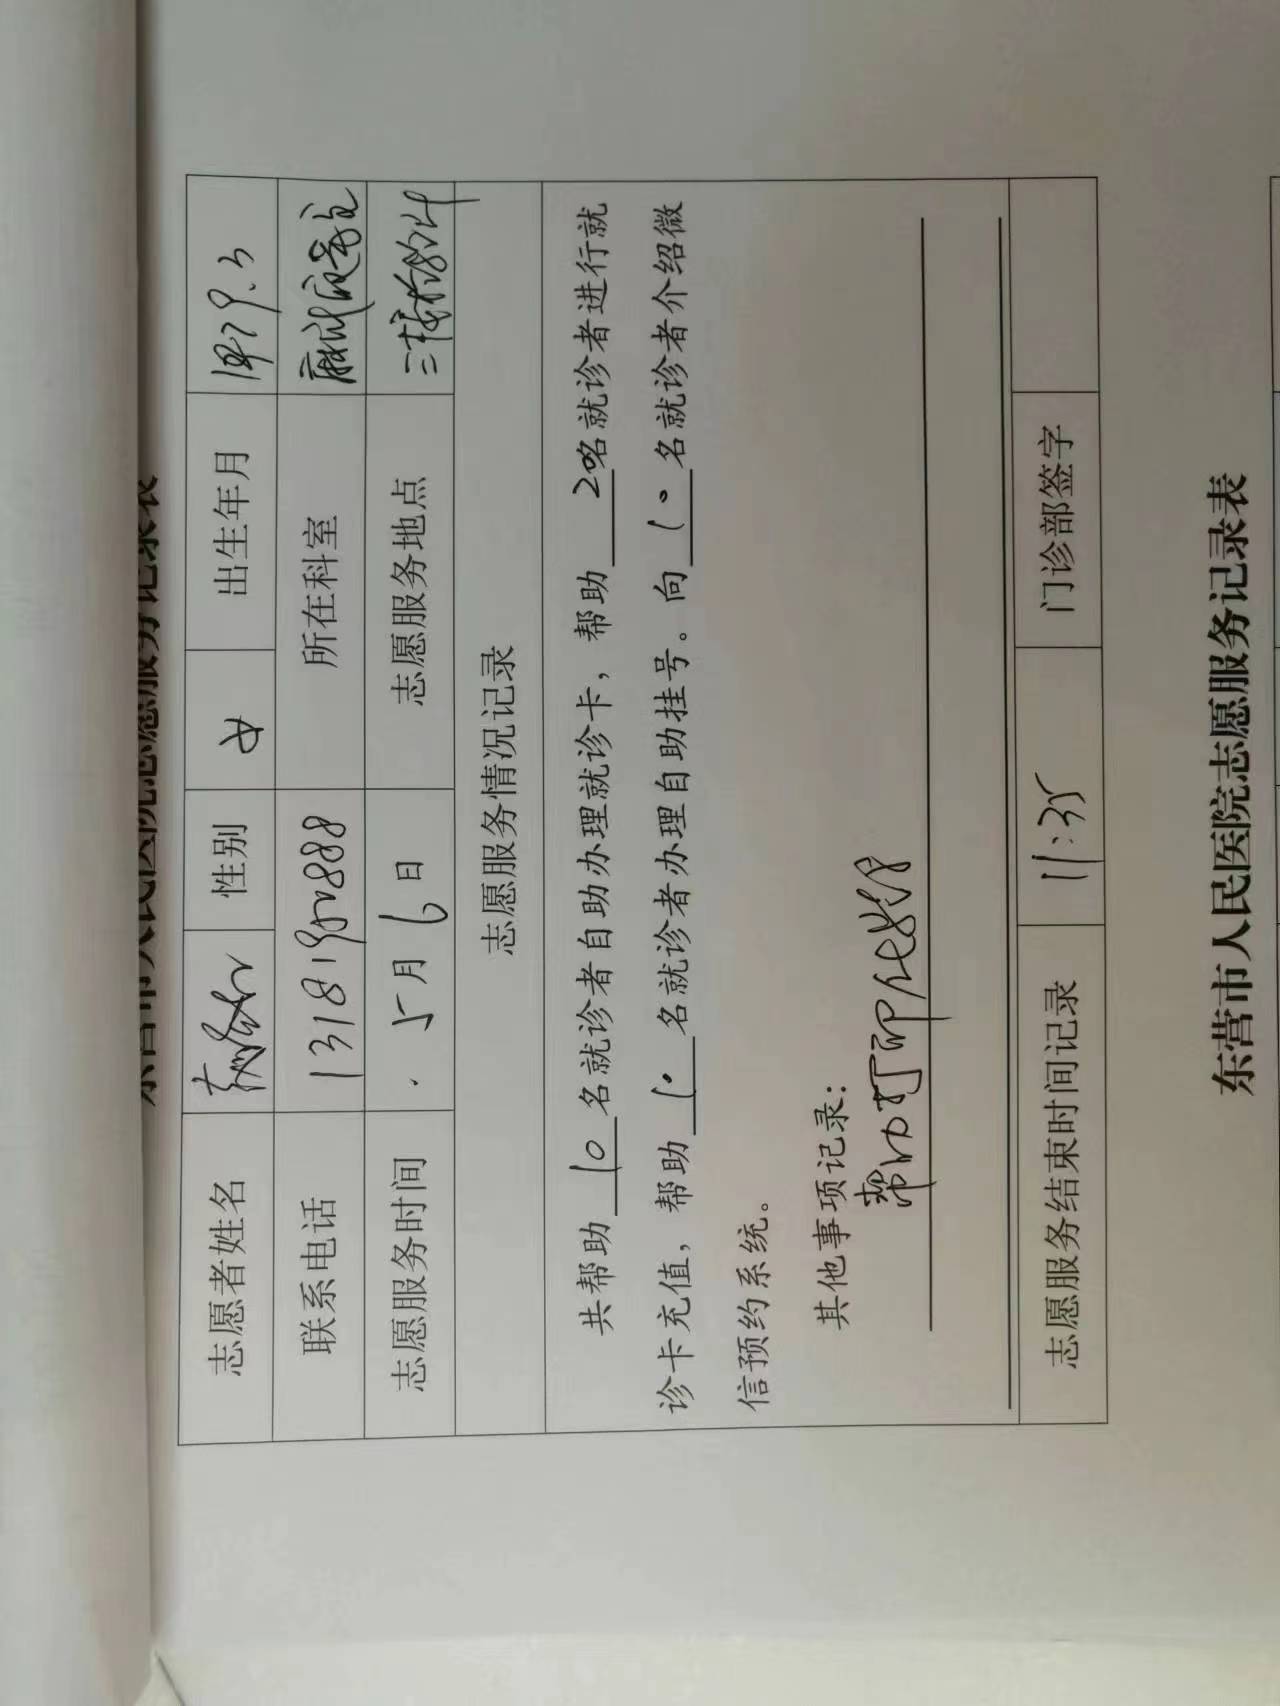 东营市人民医院志愿服务记录表
志愿者姓名 性别 女 出生年月 1979.3
联系电话 所在科室
志愿服务时间 5月6日 志愿服务地点
志愿服务情况记录
共帮助 10 名就诊者自助办理就诊卡，帮助 20 名就诊者进行就
诊卡充值，帮助 10 名就诊者办理自助挂号。向 10 名就诊者介绍微
信预约系统。
其他事项记录：
帮助打印化验
志愿服务结束时间记录 11:35 门诊部签字
东营市人民医院志愿服务记录表